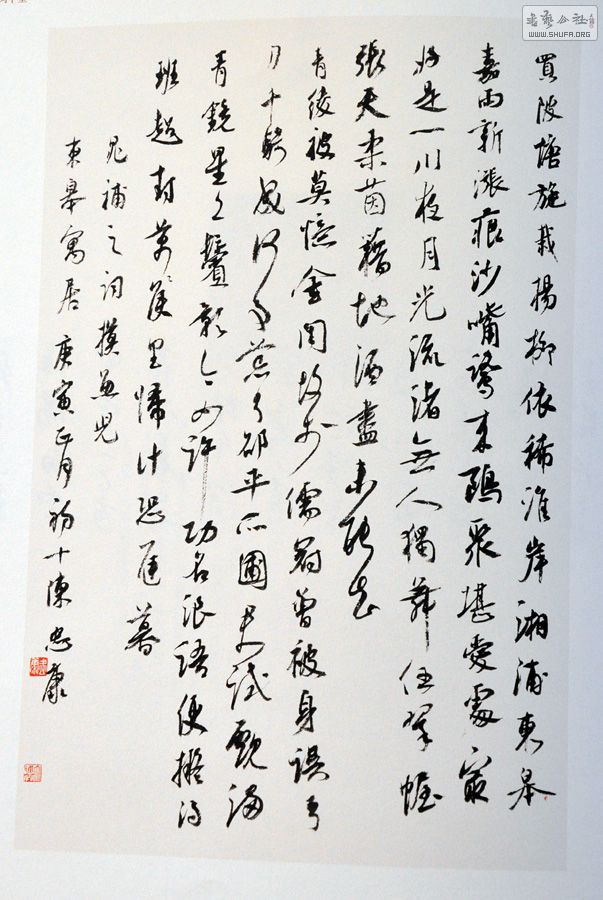 買陂塘旋栽揚柳依稀淮岸湘浦東皋
嘉雨新漲痕沙嘴鷺来鷗聚堪愛處最
好是一川夜月光流渚無人獨舞任翠幄
張天柔茵藉地酒盡未能去
青綾被莫憶金閨故步儒冠曾被身誤弓
刀千騎成何事荒了邵平瓜圃君試覷滿
青鏡星星鬢影今如許功名浪語便擬得
班超封萬侯里歸計恐遲暮
晁補之詞摸魚兒
東皋寓居庚寅正月初十陳忠康
书艺公社
WWW.SHUFA.ORG